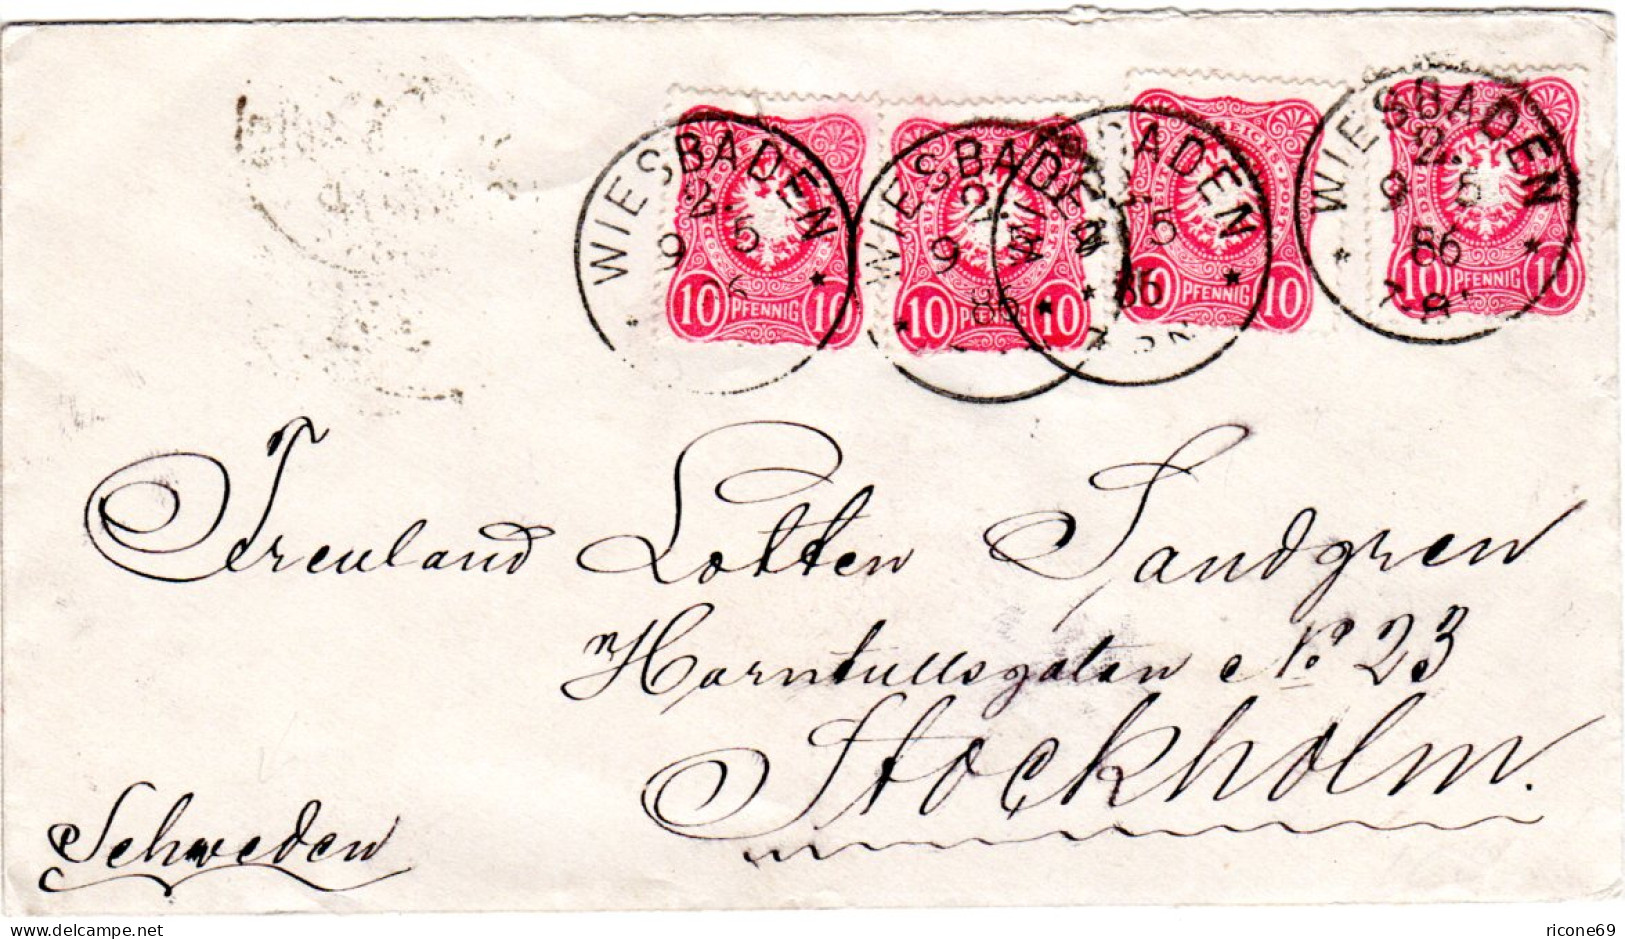 WIESBADEN
2.
9 5
WIESBADEN
2.
9
86
WIESBADEN
5
86
WIESBADEN
2.
9 5
86
10 PFENNIG 10
10 PFENNIG 10
10 PFENNIG 10
10 PFENNIG 10
Lotten Sandgren
Hornstullsgatan No 23
Stockholm.
Schweden
ricone69